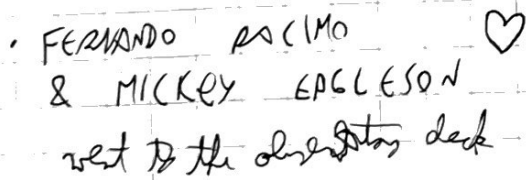 · FERNANDO RACIMO ♡
& MICKEY EAGLESON
went to the observation deck